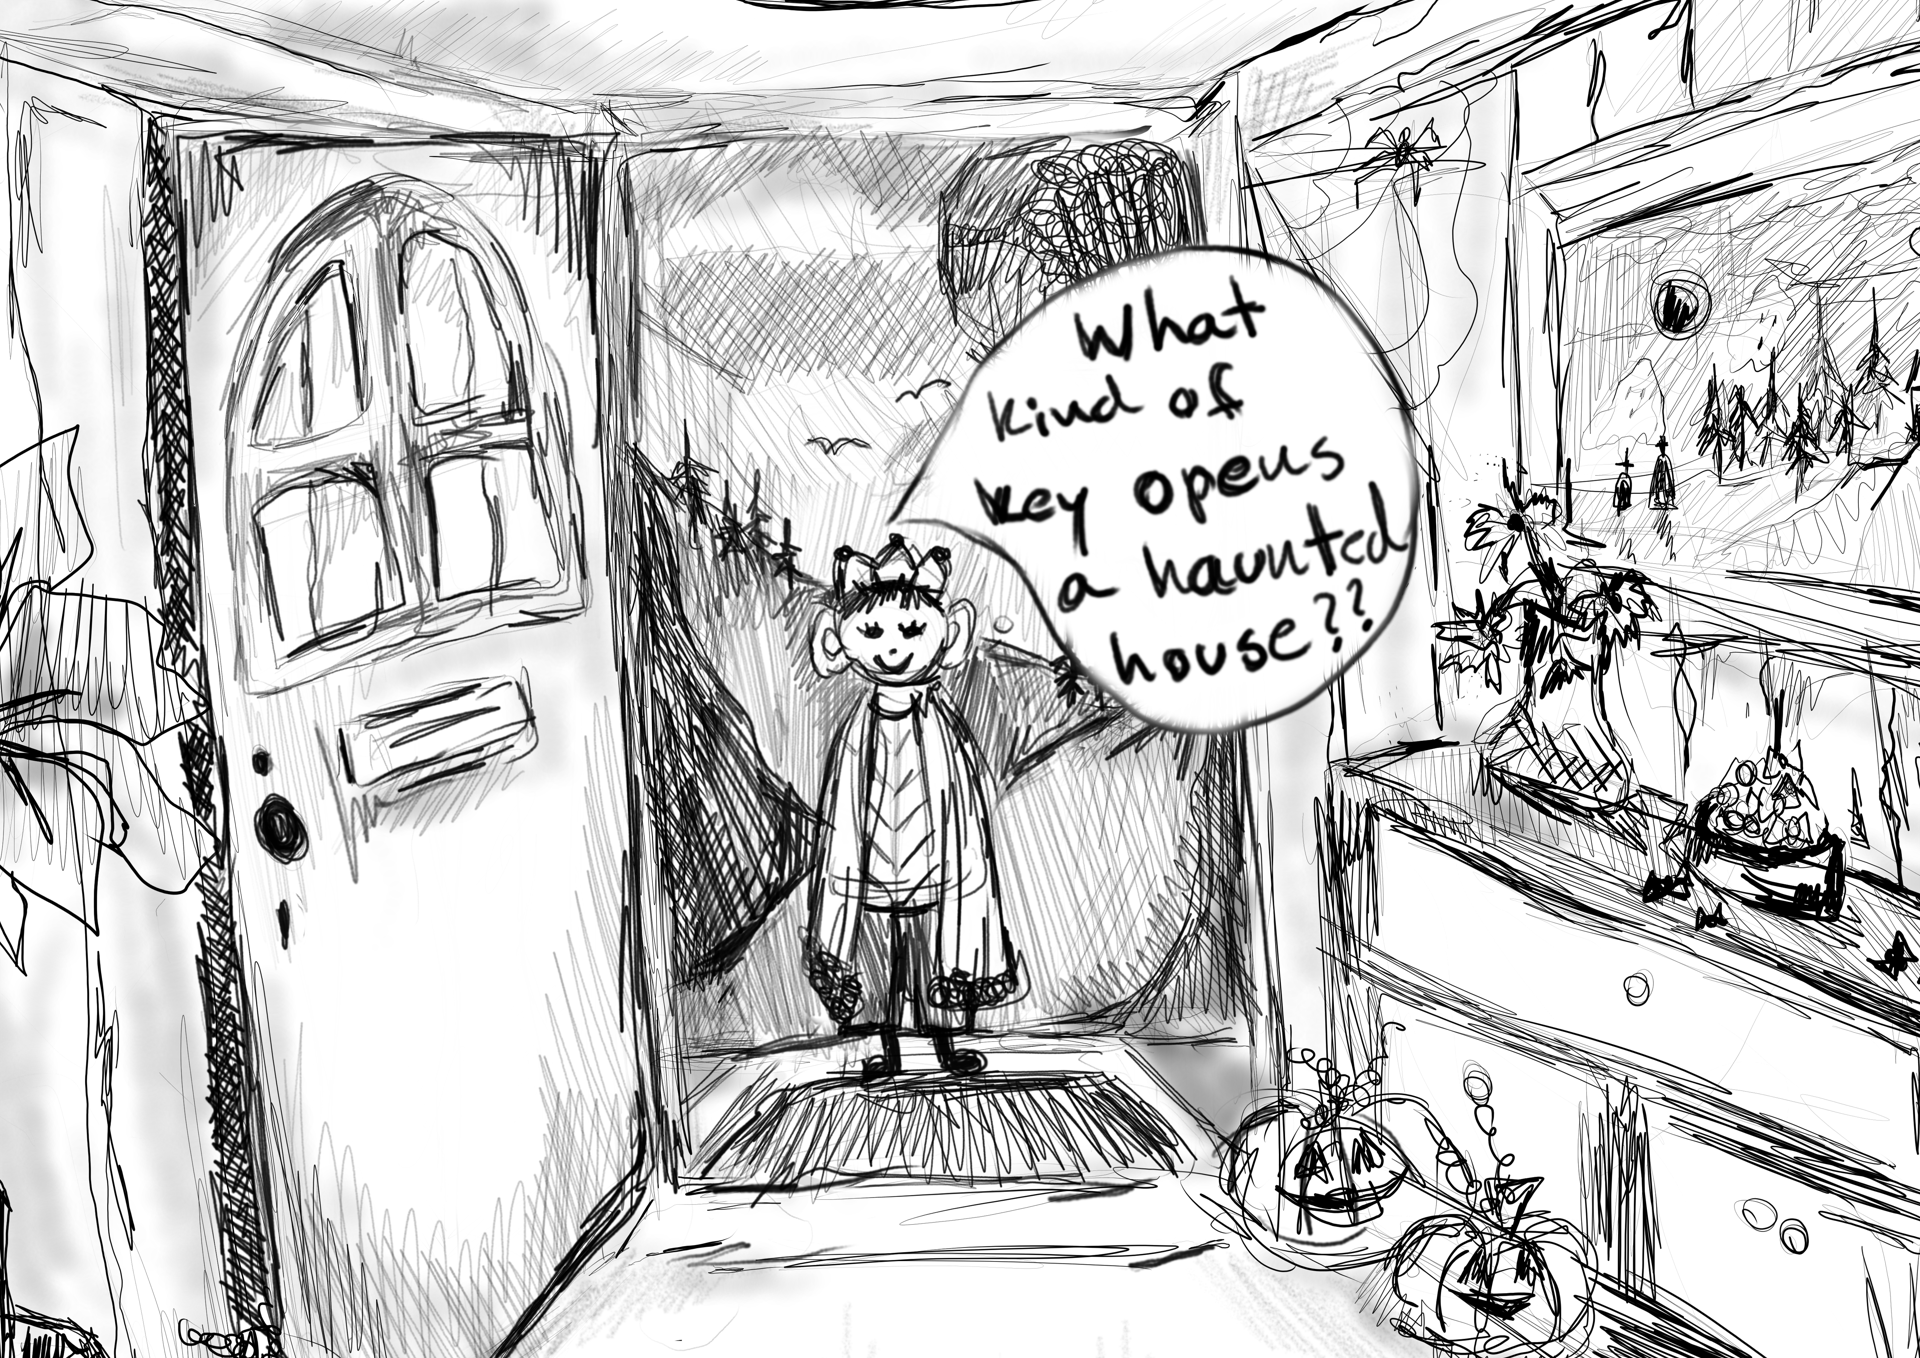 What
kind of
key opens
a haunted
house??